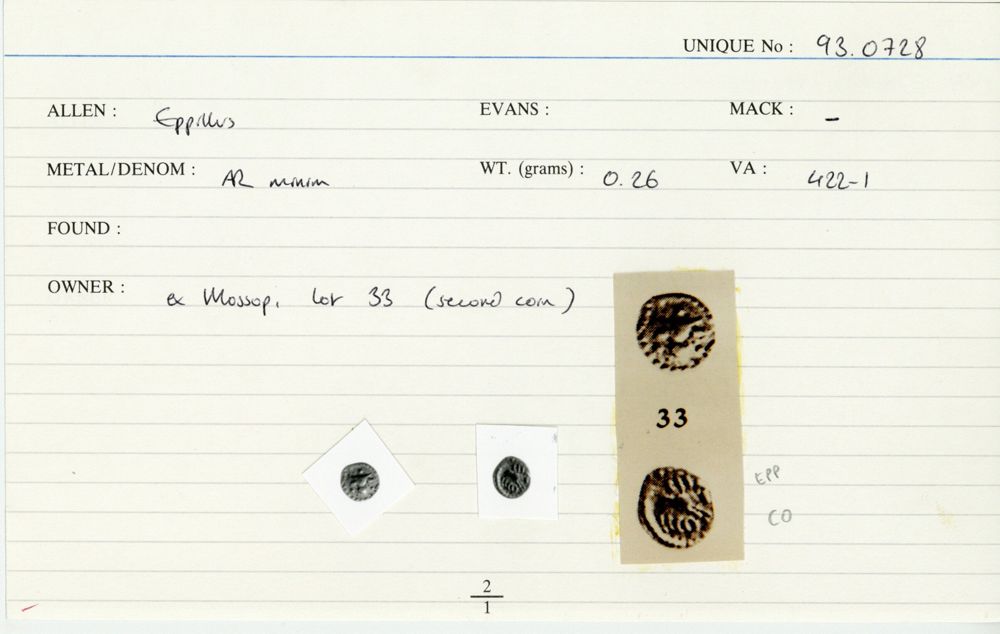 UNIQUE No : 93.0728
ALLEN : Eppillus EVANS : MACK : –
METAL/DENOM : AR minim WT. (grams) : 0.26 VA : 422-1
FOUND :
OWNER : ex Mossop, lot 33 (second coin)
33
EPP
CO
2
1